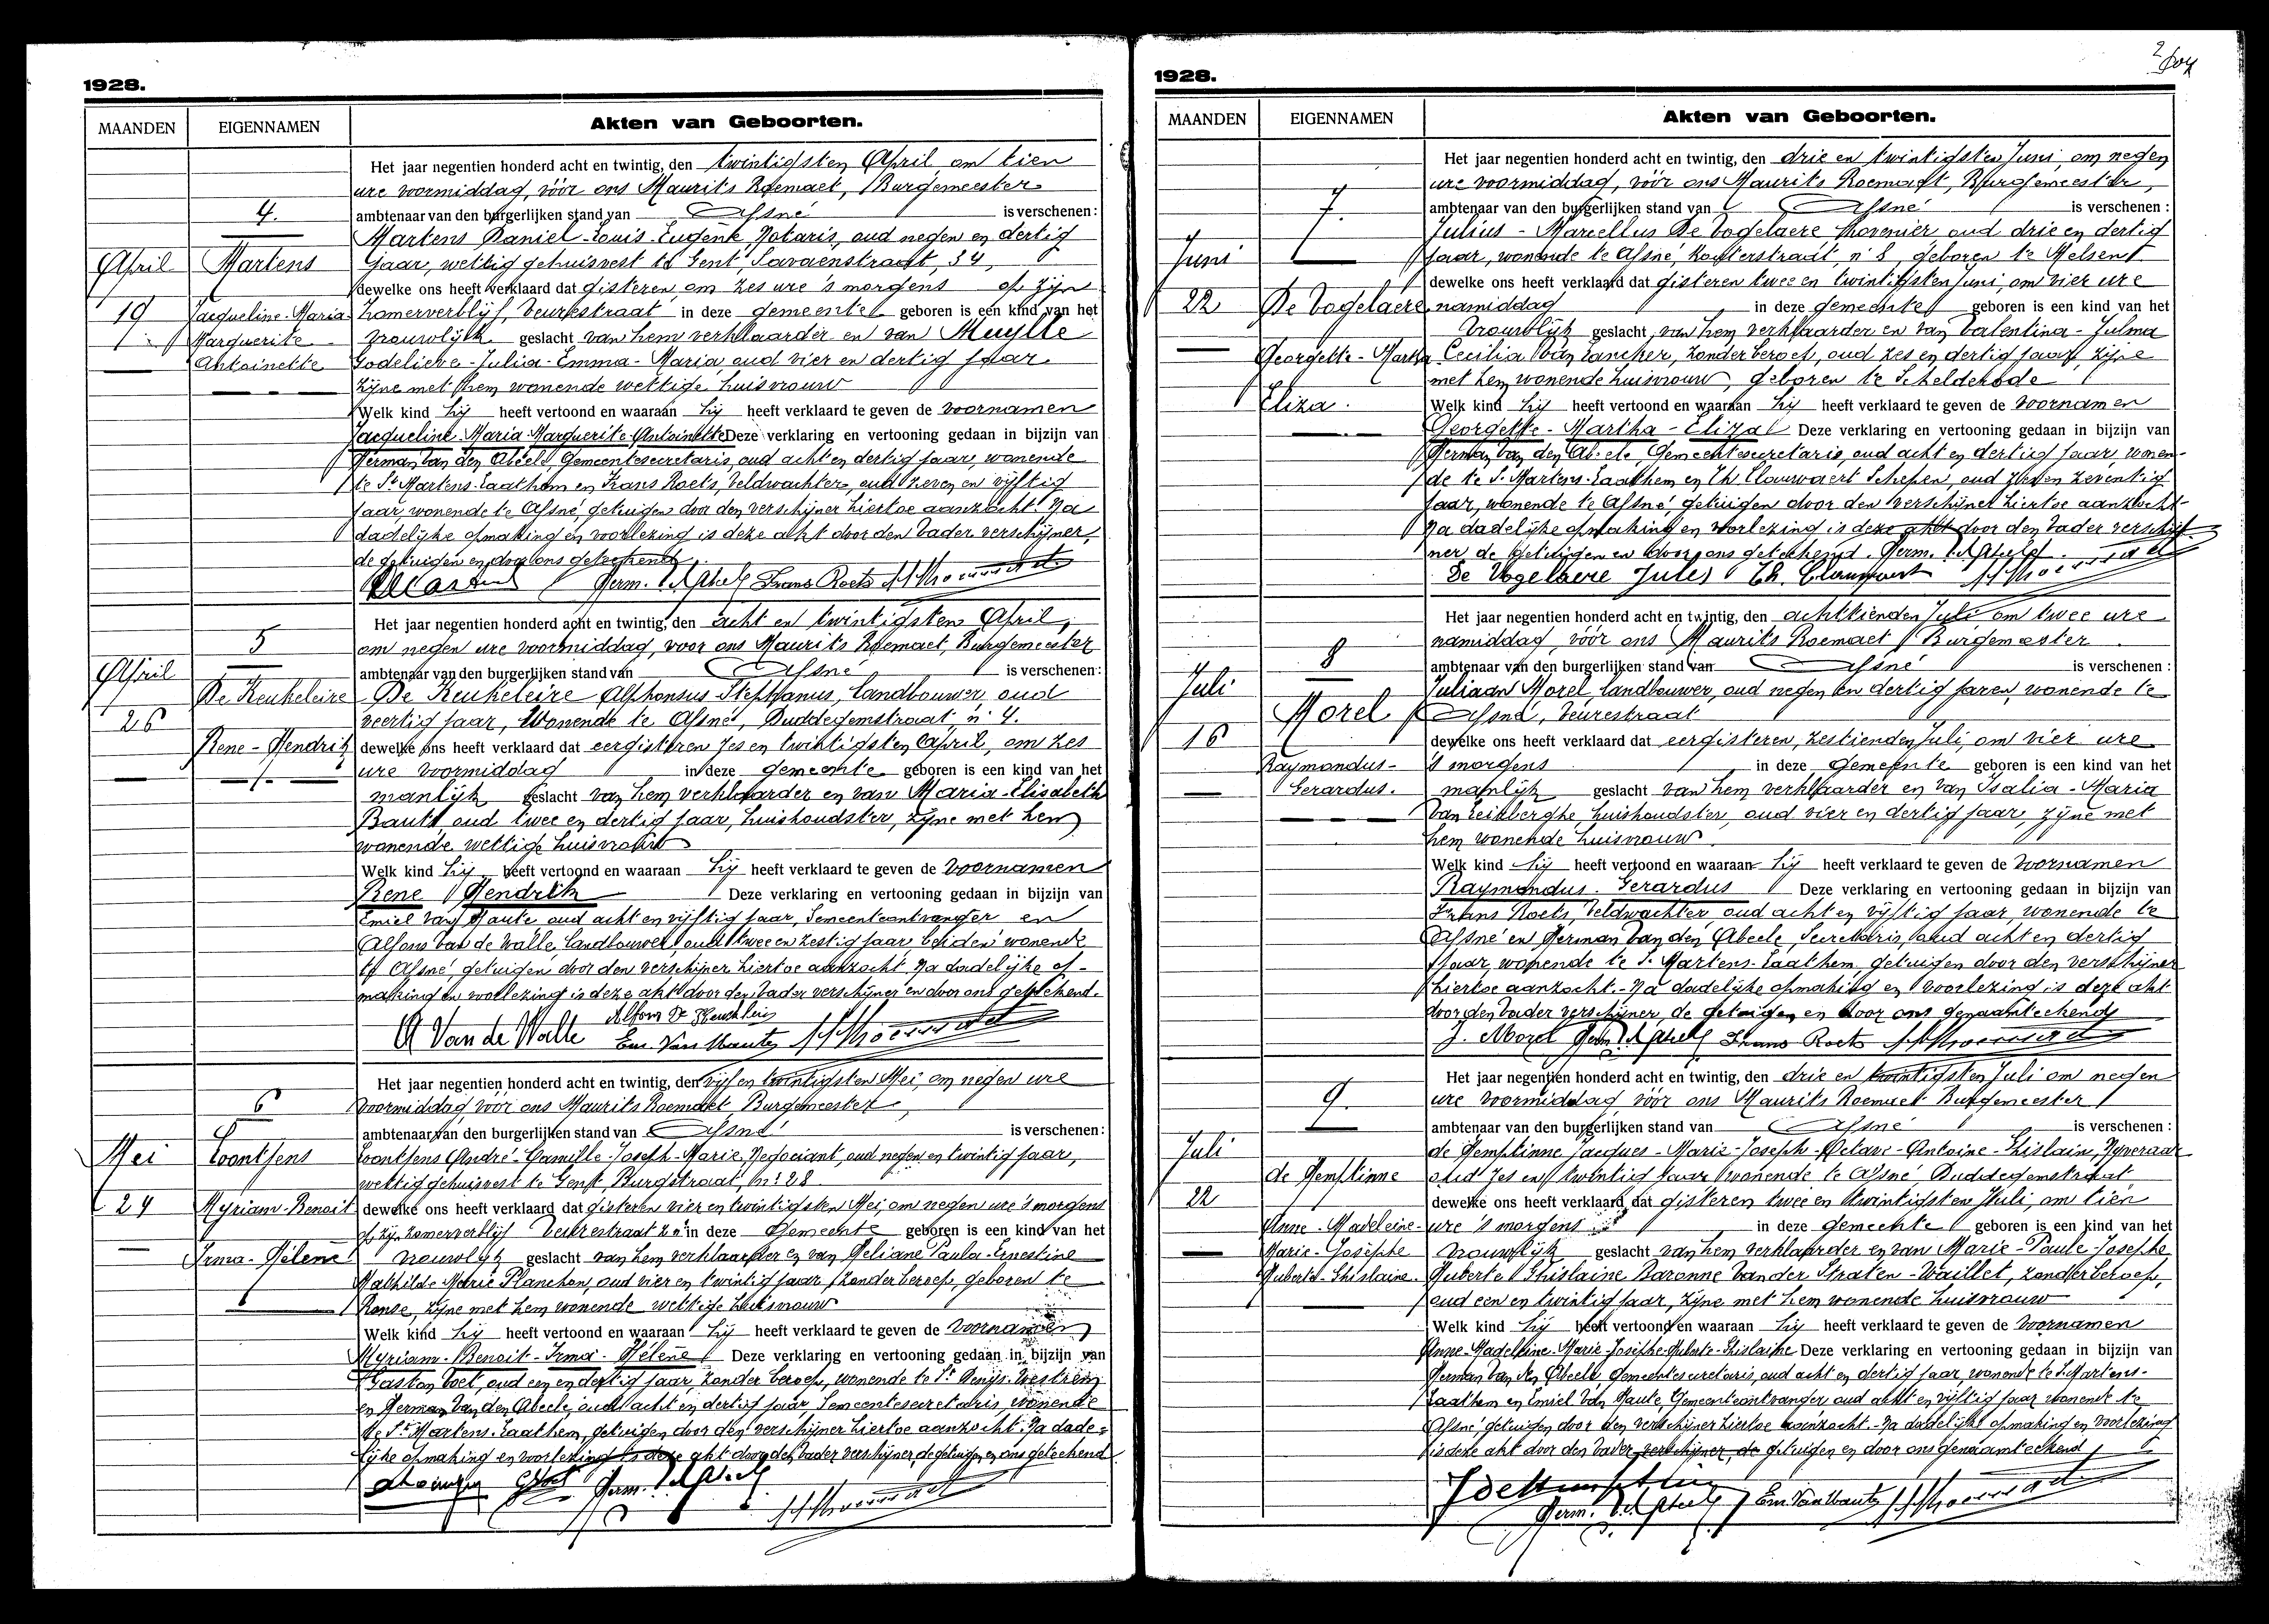 1928.
MAANDEN
EIGENNAMEN
Akten van Geboorten.
Het jaar negentien honderd acht en twintig, den twintigsten April om tien
ure voormiddag, vóór ons Maurits Roemaet, Burgemeester
4.
ambtenaar van den burgerlijken stand van Afsné is verschenen:
Martens Daniel-Louis-Eugène, Notaris, oud negen en dertig
April
Martens
jaar, wettig gehuisvest te Gent, Savaenstraat, 34,
dewelke ons heeft verklaard dat gisteren om zes ure 's morgens op zijn
19
Jacqueline-Maria-
Zomerverblijf, Veurestraat in deze gemeente geboren is een kind van het
Marguerite
vrouwlijk geslacht van hem verklaarder en van Muylle
Antoinette
Godelieve-Julia-Emma-Maria, oud vier en dertig jaar
zijne met hem wonende wettige huisvrouw
Welk kind hij heeft vertoond en waaraan hij heeft verklaard te geven de voornamen
Jacqueline-Maria-Marguerite-Antoinette Deze verklaring en vertooning gedaan in bijzijn van
Herman Van den Abeele, Gemeentesecretaris, oud acht en dertig jaar, wonende
te St Martens-Laathem en Frans Roets, Veldwachter, oud zeven en vijftig
jaar wonende te Afsné, getuigen door den verschijner hiertoe aanzocht. Na
dadelijke opmaking en voorlezing is deze akt door den Vader verschijner,
de getuigen en door ons geteekend.
Herm. Vd Abeele Frans Roets M Roemaet
5
Het jaar negentien honderd acht en twintig, den acht en twintigsten April,
om negen ure voormiddag, voor ons Maurits Roemaet, Burgemeester
April
ambtenaar van den burgerlijken stand van Afsné is verschenen:
De Keukeleire
De Keukeleire Alphonsus Stephanus, landbouwer, oud
26
veertig jaar, Wonende te Afsné, Duddegemstraat, n° 4.
Rene-Hendrik
dewelke ons heeft verklaard dat eergisteren zes en twintigsten April, om zes
ure voormiddag in deze gemeente geboren is een kind van het
manlijk geslacht van hem verklaarder en van Maria-Elisabeth
Bauts, oud twee en dertig jaar, huishoudster, zijne met hem
wonende wettige huisvrouw
Welk kind hij heeft vertoond en waaraan hij heeft verklaard te geven de voornamen
Rene Hendrik Deze verklaring en vertooning gedaan in bijzijn van
Emiel Van Haute, oud acht en vijftig jaar, Gemeenteontvanger en
Alfons Van de Walle, landbouwer, oud twee en zestig jaar, beiden wonende
te Afsné, getuigen door den verschijner hiertoe aanzocht. Na dadelijke op-
making en voorlezing is deze akt door den Vader verschijner en door ons geteekend.
A Van de Walle Alfons De Keukeleire Em. Van Haute M Roemaet
6
Het jaar negentien honderd acht en twintig, den vijf en twintigsten Mei, om negen ure
voormiddag vóór ons Maurits Roemaet, Burgemeester,
ambtenaar van den burgerlijken stand van Afsné is verschenen:
Mei
Loontjens
Loontjens André-Camille-Joseph-Marie, Negociant, oud negen en twintig jaar,
wettig gehuisvest te Gent Burgstraat, n° 28
24
Myriam-Benoit
dewelke ons heeft verklaard dat gisteren vier en twintigsten Mei, om negen ure 's morgens
op zijn zomerverblijf Veurestraat z.n° in deze Gemeente geboren is een kind van het
Irma-Hélène
vrouwlijk geslacht van hem verklaarder en van Heliane Paula-Ernestine
Mathilde Marie Planchon, oud vier en twintig jaar, zonder beroep, geboren te
Ronse, zijne met hem wonende wettige huisvrouw
Welk kind hij heeft vertoond en waaraan hij heeft verklaard te geven de voornamen
Myriam-Benoit-Irma-Hélène Deze verklaring en vertooning gedaan in bijzijn van
Gaston Voet, oud een en dertig jaar, zonder beroep, wonende te St Denijs-Westrem
en Herman Van den Abeele, oud acht en dertig jaar Gemeentesecretaris, wonende
te St Martens-Laathem, getuigen door den verschijner hiertoe aanzocht. Na dade-
lijke opmaking en voorlezing is deze akt door den Vader verschijner, de getuigen en ons geteekend
Herm. Vd Abeele
M Roemaet
1928.
MAANDEN
EIGENNAMEN
Akten van Geboorten.
Het jaar negentien honderd acht en twintig, den drie en twintigsten Juni, om negen
ure voormiddag, vóór ons Maurits Roemaet, Burgemeester,
7.
ambtenaar van den burgerlijken stand van Afsné is verschenen:
Julius-Marcellus De Vogelaere, hovenier, oud drie en dertig
Juni
jaar, wonende te Afsné, Kouterstraat, n° 8, geboren te Melsen
dewelke ons heeft verklaard dat gisteren twee en twintigsten Juni, om vier ure
22
De Vogelaere
namiddag in deze gemeente geboren is een kind van het
vrouwlijk geslacht, van hem verklaarder en van Valentina-Julma
Georgette-Martha
Cecilia Van Lancker, zonder beroep, oud zes en dertig jaar, zijne
met hem wonende huisvrouw, geboren te Schelderode
Eliza.
Welk kind hij heeft vertoond en waaraan hij heeft verklaard te geven de voornamen
Georgette-Martha-Eliza Deze verklaring en vertooning gedaan in bijzijn van
Herman Van den Abeele, Gemeentesecretaris, oud acht en dertig jaar, wonen-
de te St Martens-Laathem en Th. Clauwaert Schepen, oud zeven en zeventig
jaar, wonende te Afsné, getuigen door den verschijner hiertoe aanzocht-
Na dadelijke opmaking en voorlezing is deze akt door den Vader verschij-
ner de getuigen en door ons geteekend. Herm. Vd Abeele
De Vogelaere Jules Th. Clauwaert M Roemaet
Het jaar negentien honderd acht en twintig, den achttienden Juli om twee ure
namiddag, vóór ons Maurits Roemaet, Burgemeester
8
ambtenaar van den burgerlijken stand van Afsné is verschenen:
Juli
Juliaan Morel, landbouwer, oud negen en dertig jaren, wonende te
Morel
Afsné, Veurestraat
16
dewelke ons heeft verklaard dat eergisteren, zestienden Juli, om vier ure
Raymondus-
's morgens in deze gemeente geboren is een kind van het
Gerardus.
manlijk geslacht van hem verklaarder en van Isalia-Maria
Van Leikberghe, huishoudster, oud vier en dertig jaar, zijne met
hem wonende huisvrouw
Welk kind hij heeft vertoond en waaraan hij heeft verklaard te geven de voornamen
Raymondus-Gerardus Deze verklaring en vertooning gedaan in bijzijn van
Frans Roets, Veldwachter, oud acht en vijftig jaar, wonende te
Afsné en Herman Van den Abeele, Secretaris, oud acht en dertig
jaar, wonende te St Martens-Laathem, getuigen door den verschijner
hiertoe aanzocht.- Na dadelijke opmaking en voorlezing is deze akt
door den Vader verschijner, de getuigen en door ons genaamteekend
J. Morel Herm. Vd Abeele Frans Roets M Roemaet
Het jaar negentien honderd acht en twintig, den drie en twintigsten Juli om negen
9.
ure voormiddag, vóór ons Maurits Roemaet Burgemeester
ambtenaar van den burgerlijken stand van Afsné is verschenen:
Juli
de Hemptinne Jacques-Marie-Joseph-Octave-Antoine-Ghislain, Nijveraar
de Hemptinne
oud zes en twintig jaar wonende te Afsné, Duddegemstraat
22
dewelke ons heeft verklaard dat gisteren twee en twintigsten Juli, om tien
Anne-Madeleine-
ure 's morgens in deze gemeente geboren is een kind van het
Marie-Josèphe
vrouwlijk geslacht van hem verklaarder en van Marie-Paule-Josephe
Huberte-Ghislaine
Huberte Ghislaine Baronne Van der Straten-Waillet, zonder beroep,
oud een en twintig jaar, zijne met hem wonende huisvrouw
Welk kind hij heeft vertoond en waaraan hij heeft verklaard te geven de voornamen
Anne-Madeleine-Marie-Josèphe-Huberte-Ghislaine Deze verklaring en vertooning gedaan in bijzijn van
Herman Van den Abeele Gemeentesecretaris, oud acht en dertig jaar, wonende te St Martens-
Laathem en Emiel Van Haute, Gemeenteontvanger, oud acht en vijftig jaar wonende te
Afsné, getuigen door den verschijner hiertoe aanzocht.- Na dadelijke opmaking en voorlezing
is deze akt door den vader verschijner, de getuigen en door ons genaamteekend
J de Hemptinne
Herm. Vd Abeele Em Van Haute M Roemaet